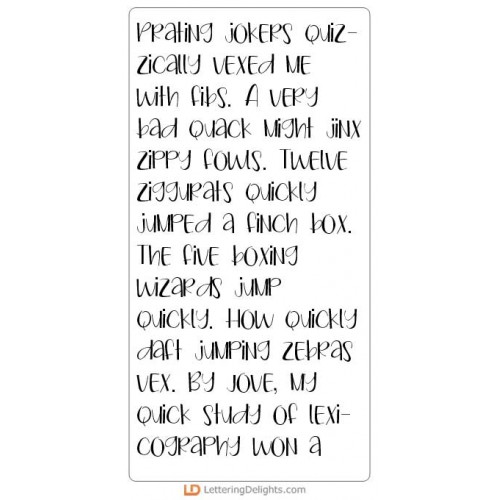 Prating jokers quiz-
zically vexed me
with fibs. A very
bad quack might jinx
zippy fowls. Twelve
ziggurats quickly
jumped a finch box.
The five boxing
wizards jump
quickly. How quickly
daft jumping zebras
vex. By Jove, my
quick study of lexi-
cography won a
LD LetteringDelights.com